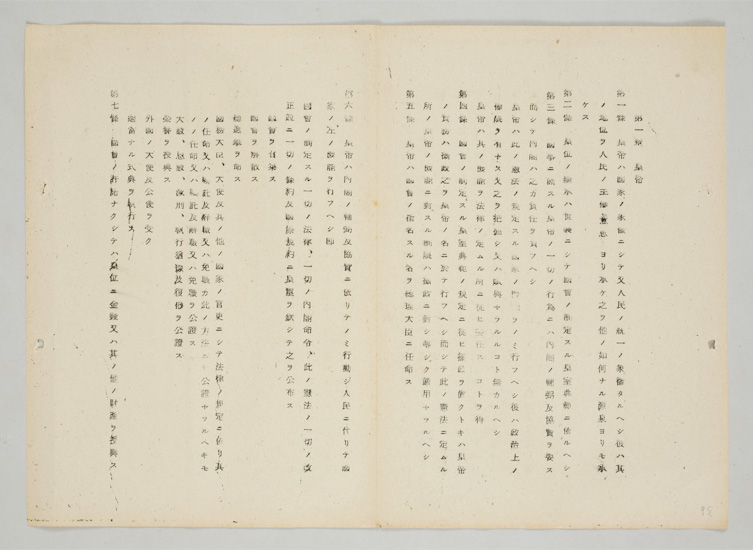 第一章 皇帝
第一條 皇帝ハ國家ノ象徴ニシテ又人民ノ統一ノ象徴タルヘシ彼ハ其
ノ地位ヲ人民ノ主權意思ヨリ承ケ之ヲ他ノ如何ナル源泉ヨリモ承
ケス
第二條 皇位ノ繼承ハ世襲ニシテ國會ノ制定スル皇室典範ニ依ルヘシ
第三條 國事ニ關スル皇帝ノ一切ノ行爲ニハ内閣ノ輔弼及協賛ヲ要ス
而シテ内閣ハ之カ責任ヲ負フヘシ
皇帝ハ此ノ憲法ノ規定スル國家ノ機能ヲノミ行フヘシ彼ハ政治上ノ
權限ヲ有セス又之ヲ把握シ又ハ賦與セラルルコト無カルヘシ
皇帝ハ其ノ權能ヲ法律ノ定ムル所ニ從ヒ委任スルコトヲ得
第四條 國會ノ制定スル皇室典範ノ規定ニ從ヒ攝政ヲ置クトキハ皇帝
ノ責務ハ攝政之ヲ皇帝ノ名ニ於テ行フヘシ而シテ此ノ憲法ニ定ムル
所ノ皇帝ノ權能ニ對スル制限ハ攝政ニ對シ等シク適用セラルヘシ
第五條 皇帝ハ國會ノ指名スル者ヲ總理大臣ニ任命ス
第六條 皇帝ハ内閣ノ輔弼及協賛ニ依リテノミ行動シ人民ニ代リテ國
家ノ左ノ機能ヲ行フヘシ即
國會ノ制定スル一切ノ法律、一切ノ内閣命令、此ノ憲法ノ一切ノ改
正並ニ一切ノ條約及國際規約ニ皇璽ヲ欽シテ之ヲ公布ス
國會ヲ召集ス
國會ヲ解散ス
總選擧ヲ命ス
國務大臣、大使及其ノ他ノ國家ノ官吏ニシテ法律ノ規定ニ依リ其
ノ任命又ハ囑託及辭職又ハ免職カ此ノ方法ニテ公證セラルヘキモ
ノノ任命又ハ囑託及辭職又ハ免職ヲ公證ス
大赦、恩赦、減刑、執行猶豫及復權ヲ公證ス
榮譽ヲ授與ス
外國ノ大使及公使ヲ受ク
適當ナル式典ヲ執行ス
第七條 國會ノ許諾ナクシテハ皇位ニ金錢又ハ其ノ他ノ財産ヲ授與ス